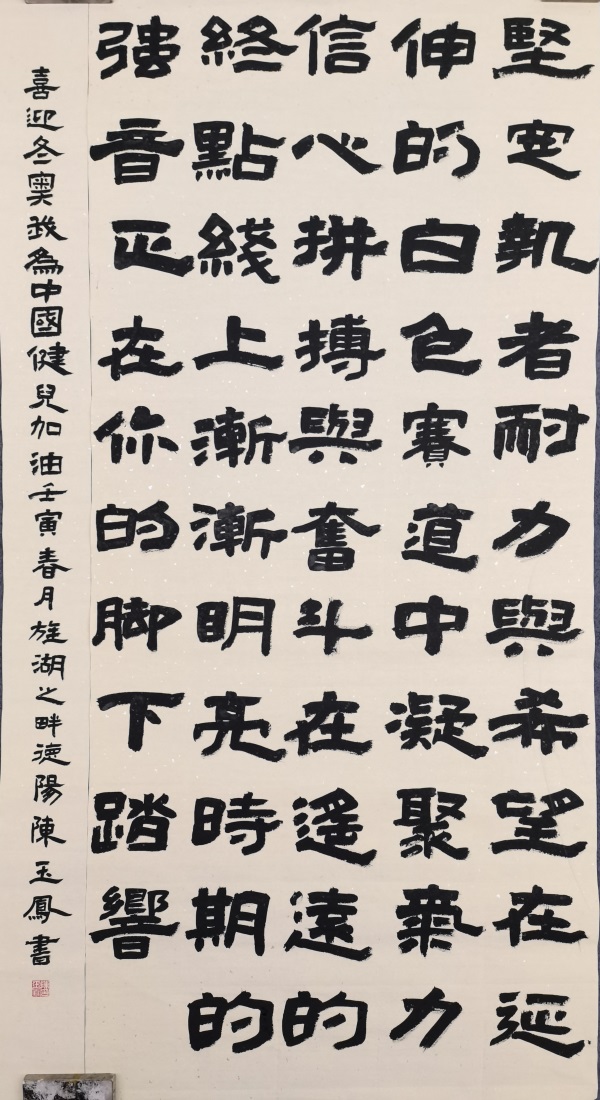 堅定執者耐力與希望在延
伸的白色賽道中凝聚氣力
信心拼搏與奮斗在遙遠的
終點綫上漸漸明亮時期的
強音正在你的脚下踏響
喜迎冬奧我為中國健兒加油壬寅春月旌湖之畔德陽陳玉鳳書